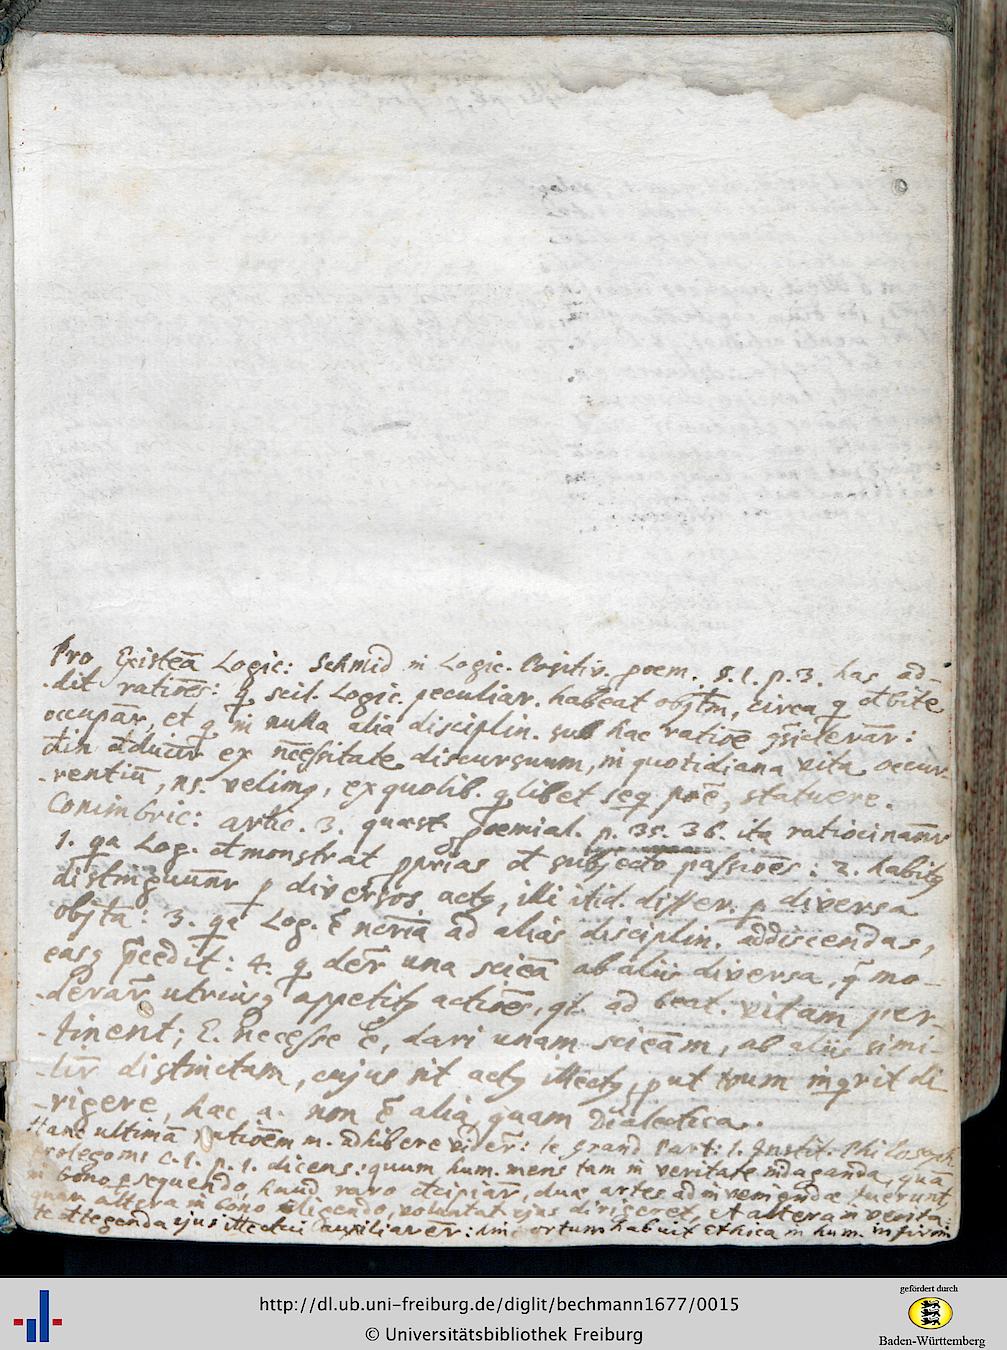 Pro Existeã Logic: Schmid in Logic. Positiv. poem. s. 1. p. 3. has ad-
-dit ratiões: scil. Logic. peculiar. habeat objtm, circa
occupar, et in nulla alia disciplin. sub hac ratiõe
ex necessitate discursuum, in quotidiana vita occur-
-rentiũ, ns. velimq, ex quolib. qlibet seq. poẽ, statuere.
Conimbric: artic. 3. quæst. proemial. p. 35. 36. ita ratiocinanr
1. qa Log. dmonstrat pprias d subjecto passiões: 2. habitq
distinguunr p diversos actq, illi itid. differ. p diversa
objta: 3. qa Log. ẽ ncria ad alias disciplin. addiscendas,
easq pcedit: 4. q der una scieã ab aliis diversa, q mo-
-derar utriusq appetitq actiões, qt. ad beat. vitam per-
-tinent; E. necesse ẽ, dari unam scieãm, ab aliis simi-
-litr distinctam, cujus sit actq illectq, put in qrit di
-rigere, hæc a. non ẽ alia, quam Dialectica.
Hanc ultimã ratioẽm m. adhibere vider: le Grand Part: 1. Instit. Philosoph
Prolegom: c. 1. p. 1. dicens: quum hum. mens tam in veritate indaganda, quã
in bono psequendo, haud raro dcipiar, duæ artes ad inveniendæ fuerunt,
quarum altera in bono eligendo, voluntat ejus dirigeret, et altera in verita-
te dtegenda ejus illectui auxiliarer: hinc ortum habuit Ethica in hum. infirm
http://dl.ub.uni-freiburg.de/diglit/bechmann1677/0015
© Universitätsbibliothek Freiburg
gefördert durch
Baden-Württemberg